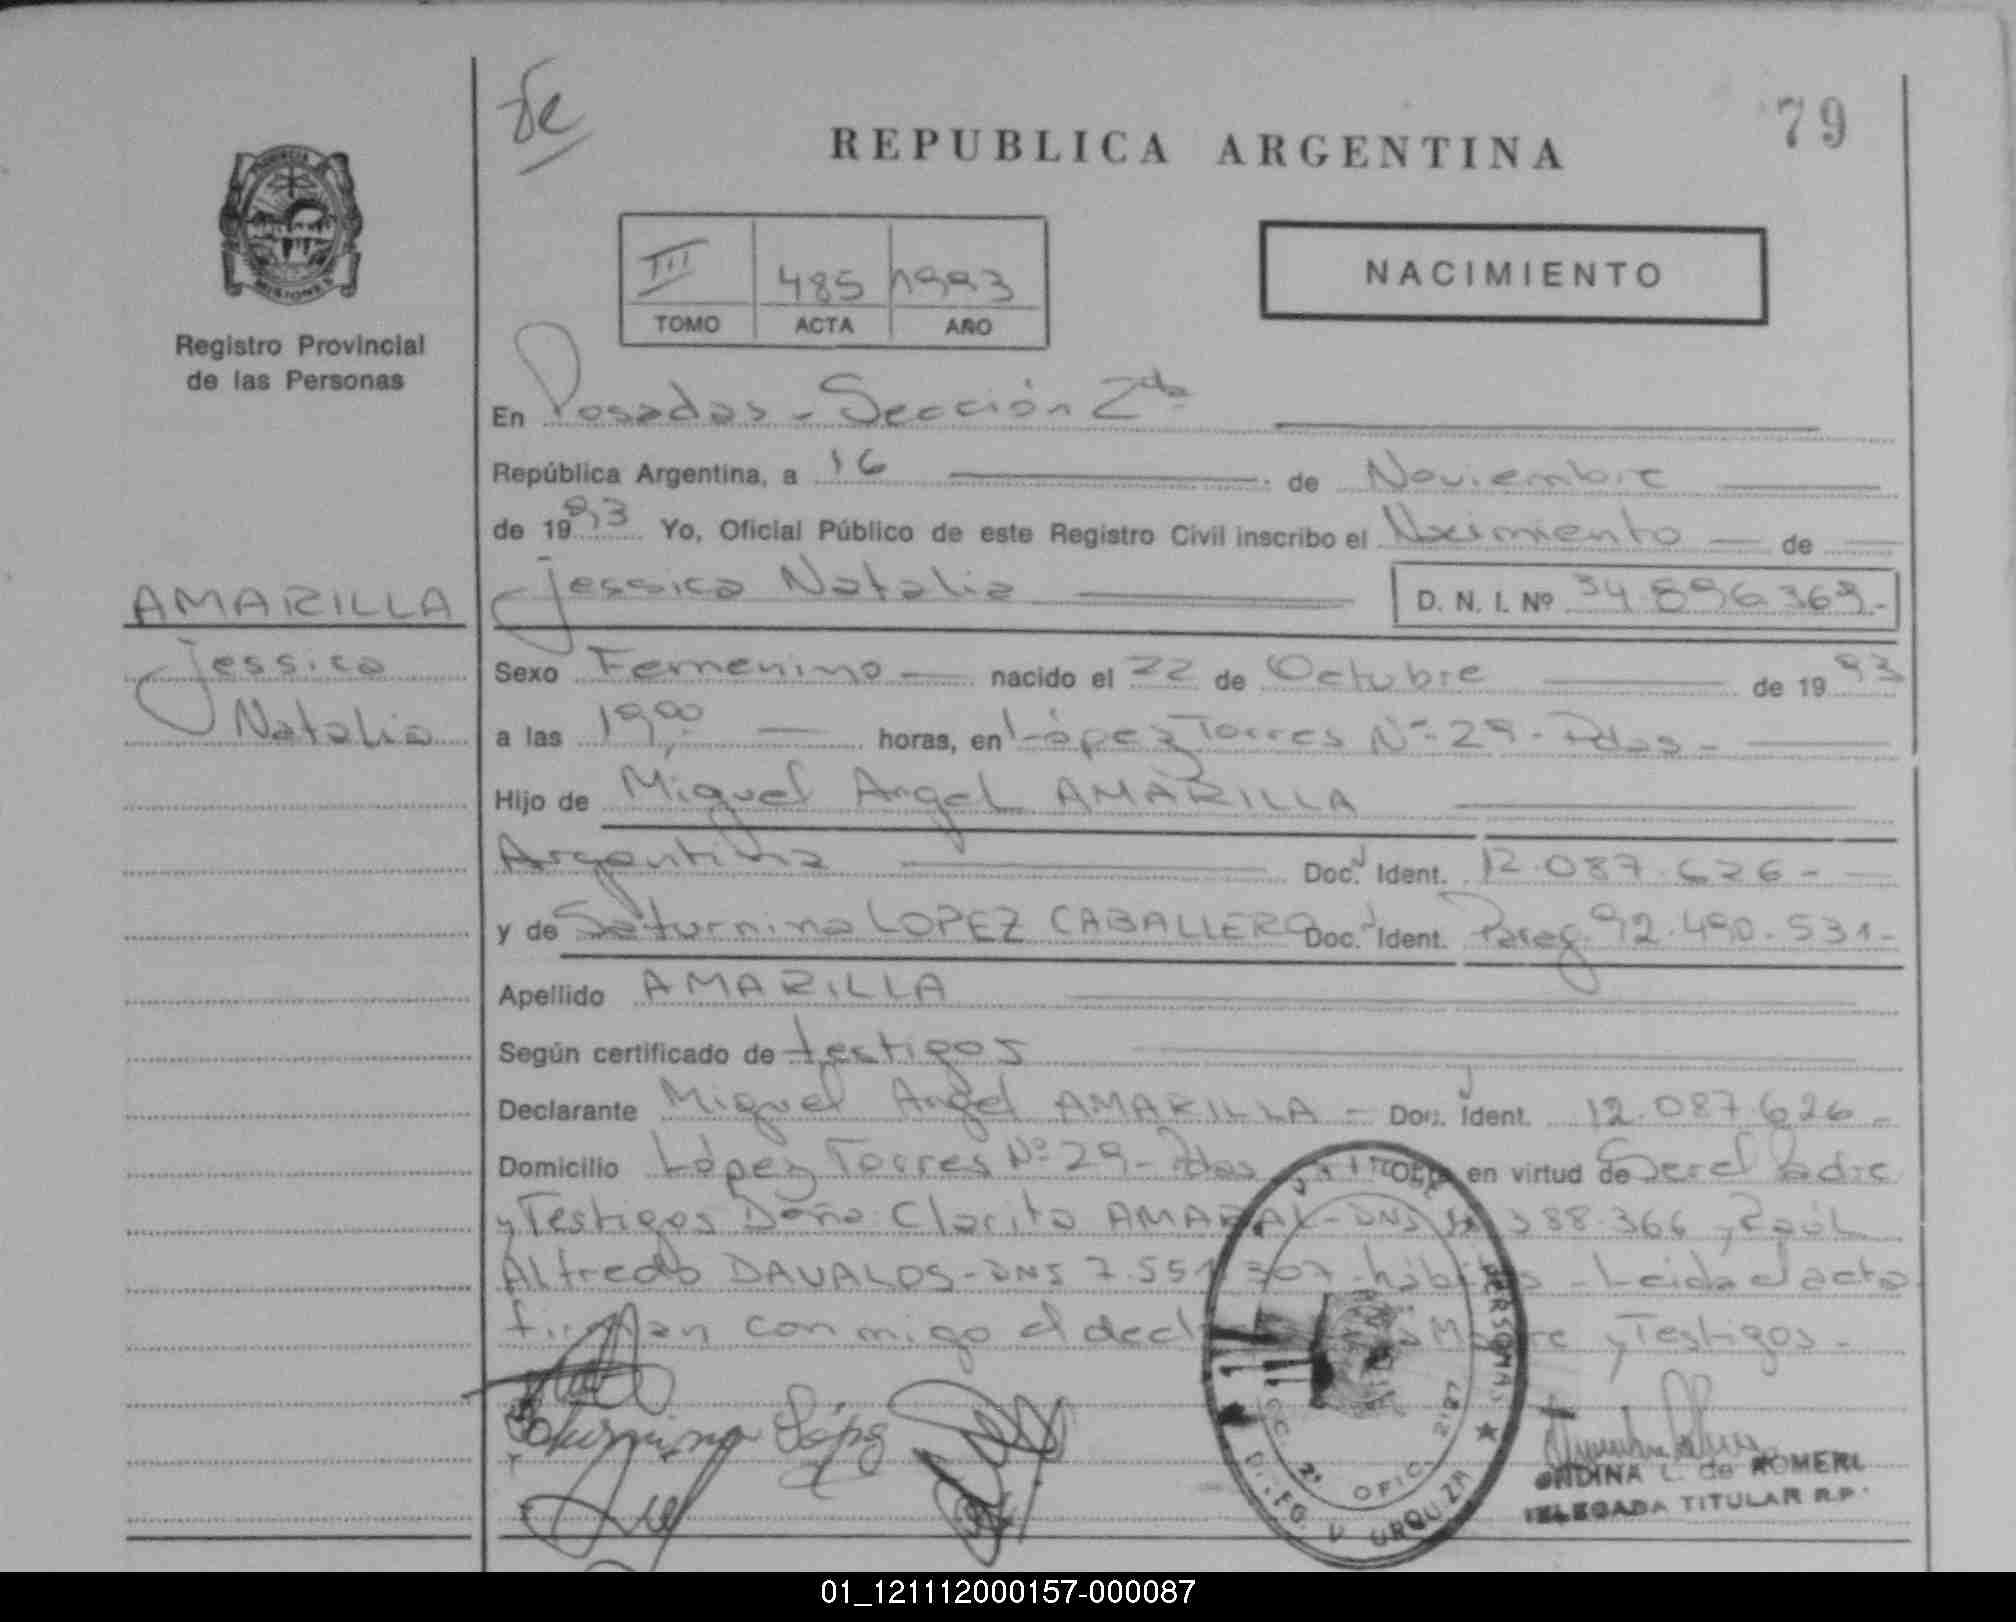 de
79
REPUBLICA ARGENTINA
PROVINCIA
MISIONES
Registro Provincial
de las Personas
III 485 1993
TOMO ACTA AÑO
NACIMIENTO
En Posadas - Sección 2da
República Argentina, a 16 de Noviembre
de 1993 Yo, Oficial Público de este Registro Civil inscribo el Nacimiento de
AMARILLA
Jessica
Natalia
Jessica Natalia D. N. I. Nº 34.896.369.-
Sexo Femenino nacido el 22 de Octubre de 1993
a las 19,00 horas, en López Torres Nº 29 - Pdas -
Hijo de Miguel Angel AMARILLA
Argentina Doc. Ident. 12.087.626 -
y de Saturnina LOPEZ CABALLERO Doc. Ident. Parag. 92.490.531-
Apellido AMARILLA
Según certificado de testigos
Declarante Miguel Angel AMARILLA - Doc. Ident. 12.087.626 -
Domicilio López Torres Nº 29 - Pdas en virtud de Ser el Padre
y Testigos Doña Clarita AMARAL - DNI 388.366 y Raúl
Alfredo DAVALOS - DNI 7.551.307 - hábiles - Leida el acta
firman conmigo el Madre y Testigos -
Saturnina López
PERSONAS
2ª OFIC. 2187
URQUIZA
ONDINA L. de ROMERO
DELEGADA TITULAR R.P.
01_121112000157-000087